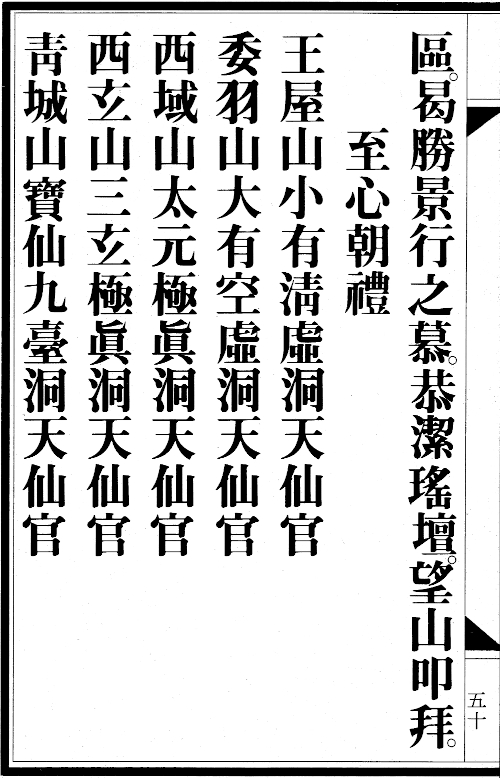 區。曷勝景行之慕。恭潔瑤壇。望山叩拜。
至心朝禮
王屋山小有淸虛洞天仙官
委羽山大有空虛洞天仙官
西域山太元極眞洞天仙官
西玄山三玄極眞洞天仙官
靑城山寶仙九臺洞天仙官
五十